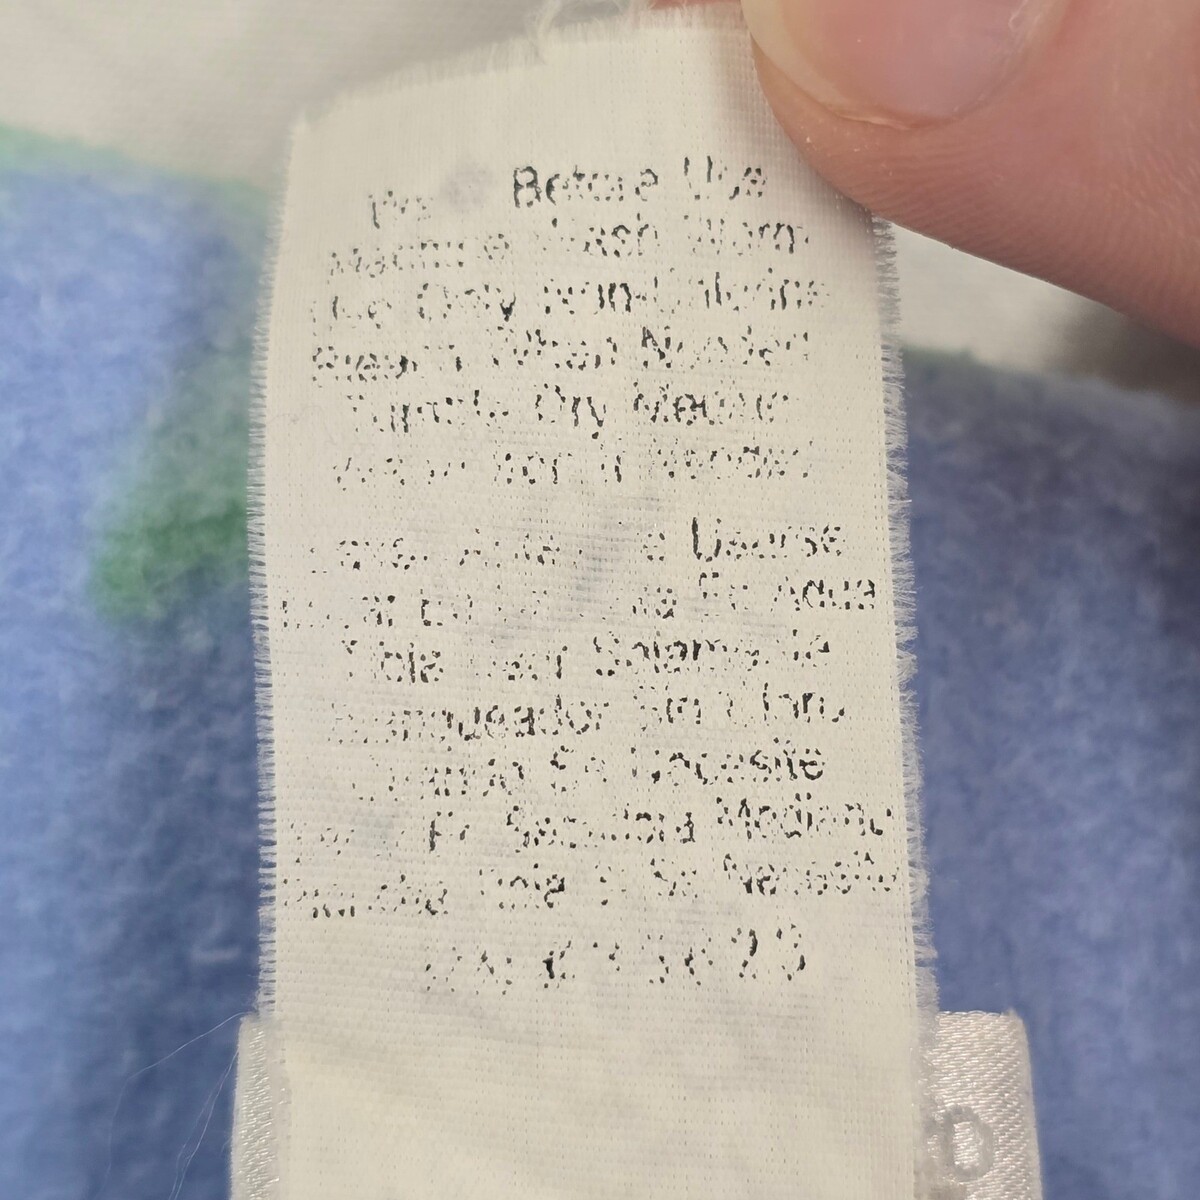 Before Use
Machine Wash Warm
Use Only Non-Chlorine
Bleach When Needed
Tumble Dry Medium
Warm Iron If Needed
Lavar Antes De Usarse
Lavar En Maquina En Agua
Tibia Usar Solamente
Blanqueador Sin Cloro
Cuando Se Necesite
En Secadora Mediano
Plancha Tibia Si Se Necesita